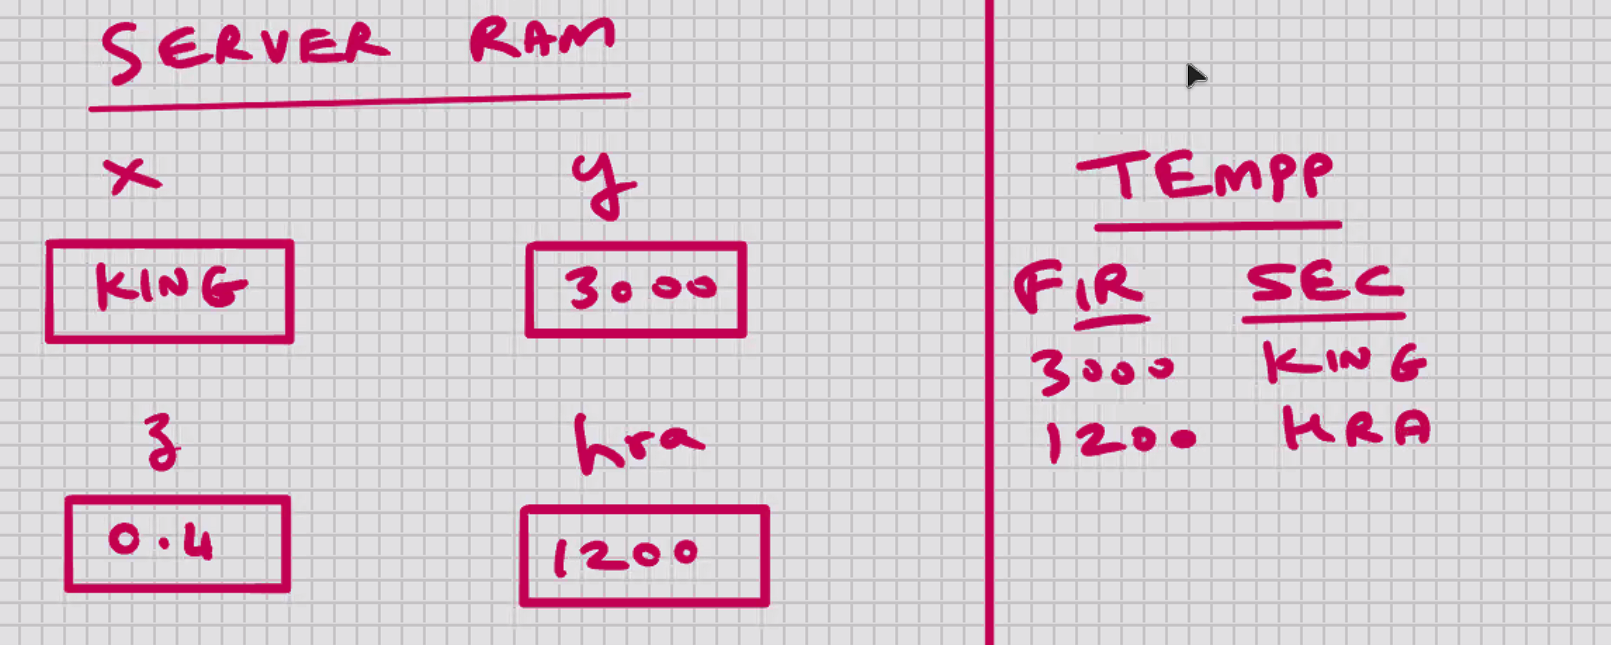 SERVER RAM
x y
KING 3000
z hra
0.4 1200
TEMPP
FIR SEC
3000 KING
1200 HRA